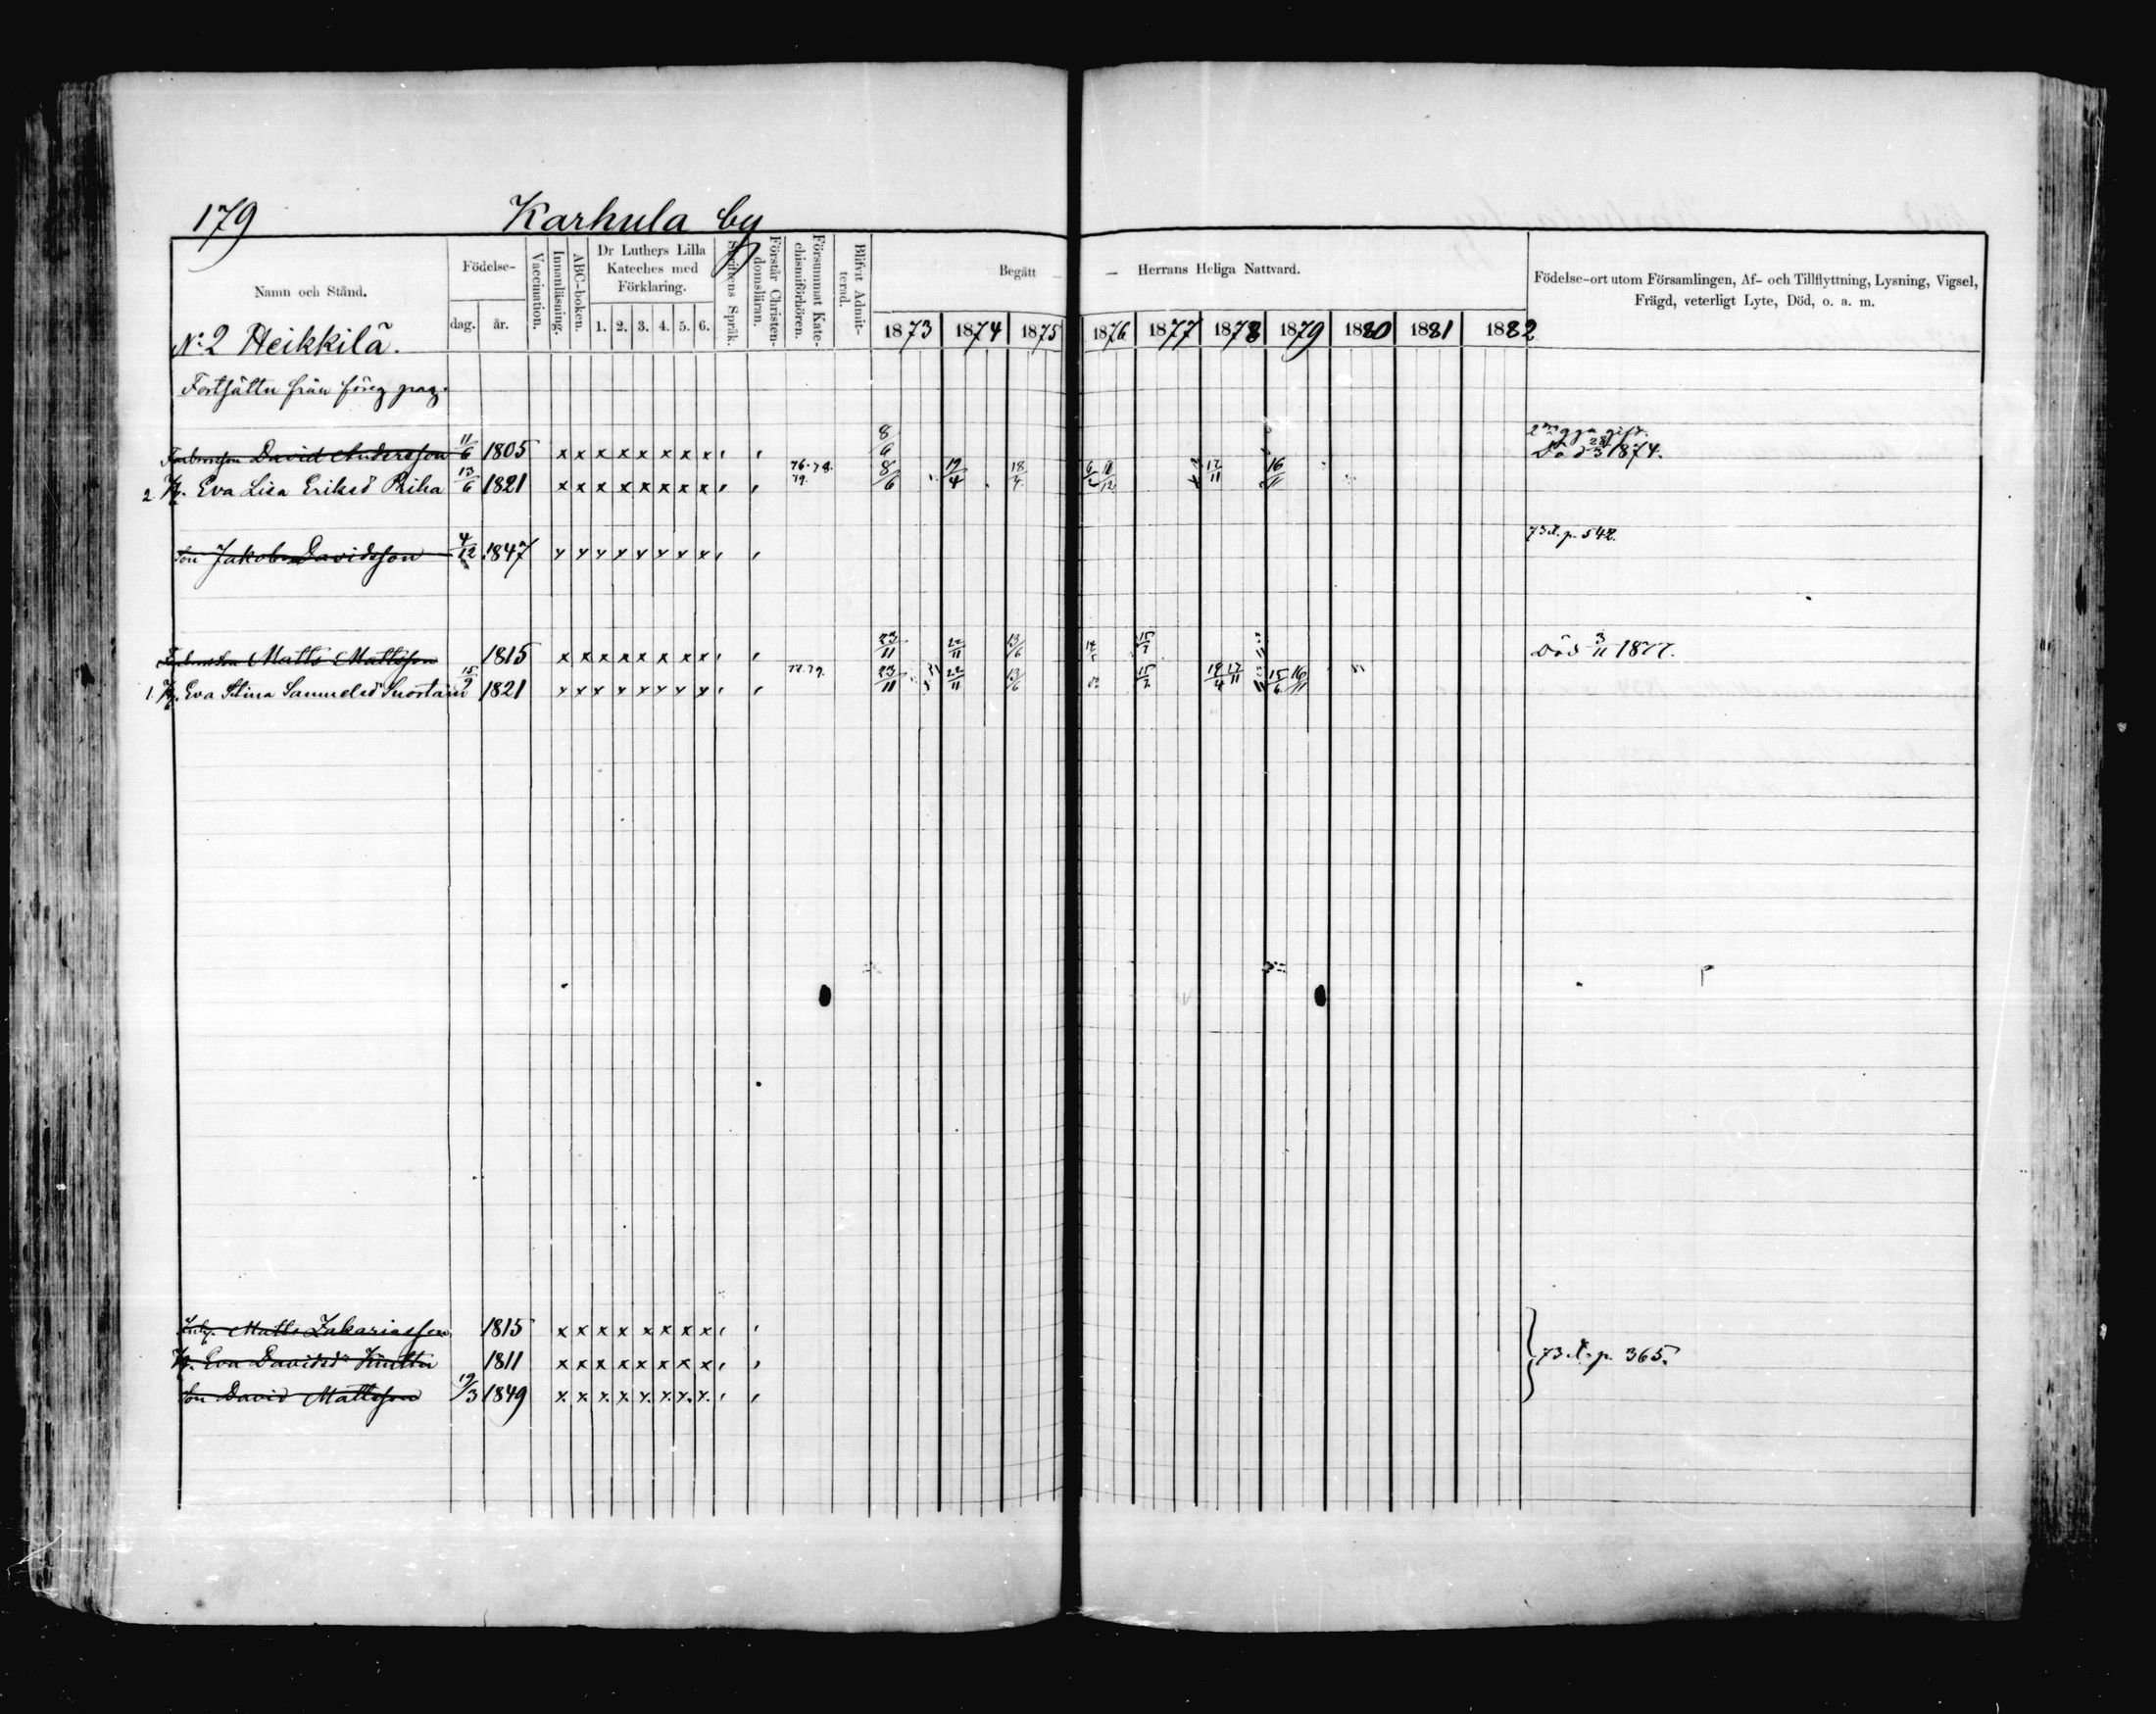 179 Karhula by
Namn och Stånd.
Födelse-
dag. år.
Vaccination.
Innanläsning.
ABC-boken.
Dr Luthers Lilla
Kateches med
Förklaring.
1. 2. 3. 4. 5. 6.
Skriftens Språk.
Förstår Christen-
domsläran.
Försummat Kate-
chismiförhören.
Blifvit Admit-
terad.
Begått — — Herrans Heliga Nattvard.
1873 1874 1875 1876 1877 1878 1879 1880 1881 1882
Födelse-ort utom Församlingen, Af- och Tillflyttning, Lysning, Vigsel,
Frägd, veterligt Lyte, Död, o. a. m.
No 2 Heikkilä.
Fortsättn från föreg pag.
David Andersson 11/6 1805 x x x x x x x x ' ' 8/6 2 gift. Död 28/3 1874.
2 H. Eva Lisa Eriksd Riha 13/6 1821 x x x x x x x x ' ' 76. 78. 79. 8/6 19/4 18/4 12/11 16/11
Son Jakob Davidsson 4/12 1847 x x x x x x x x ' ' 73 d. p. 542.
Matts Mattsson 1815 x x x x x x x x ' ' 23/11 22/11 13/6 15/7 Död 3/11 1877.
1. H. Eva Stina Samuelsd 15/9 1821 x x x x x x x x ' ' 77. 79. 23/11 22/11 13/6 15/7 12/11 15/6 16/11
Matts Zakariasson 1815 x x x x x x x x ' '
H. Eva Davidsd 1811 x x x x x x x x ' ' 73 d. p. 365.
Son David Mattsson 19/3 1849 x x x x x x x x ' '